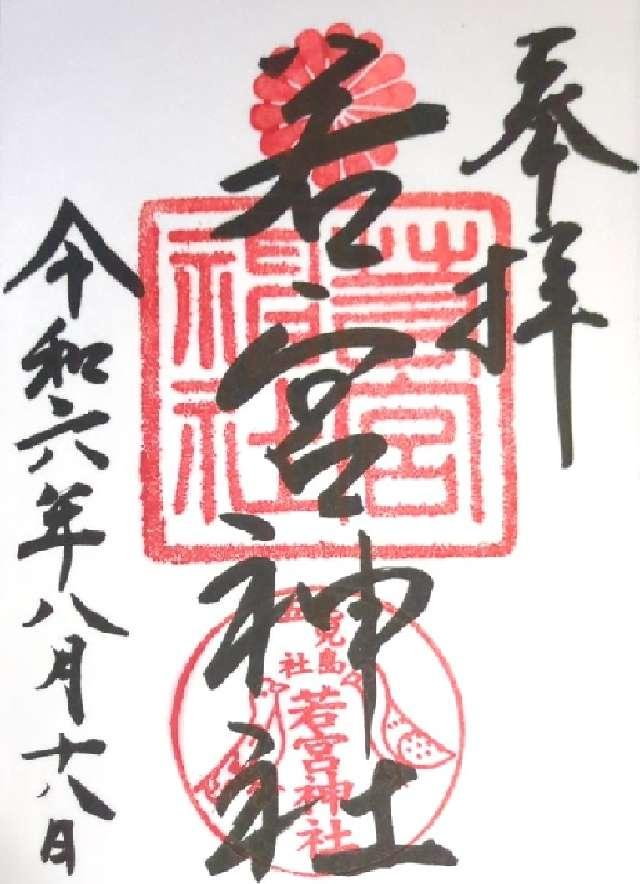 奉拝
若宮神社
若宮
神社
児島
五社
若宮神社
令和六年八月十八日